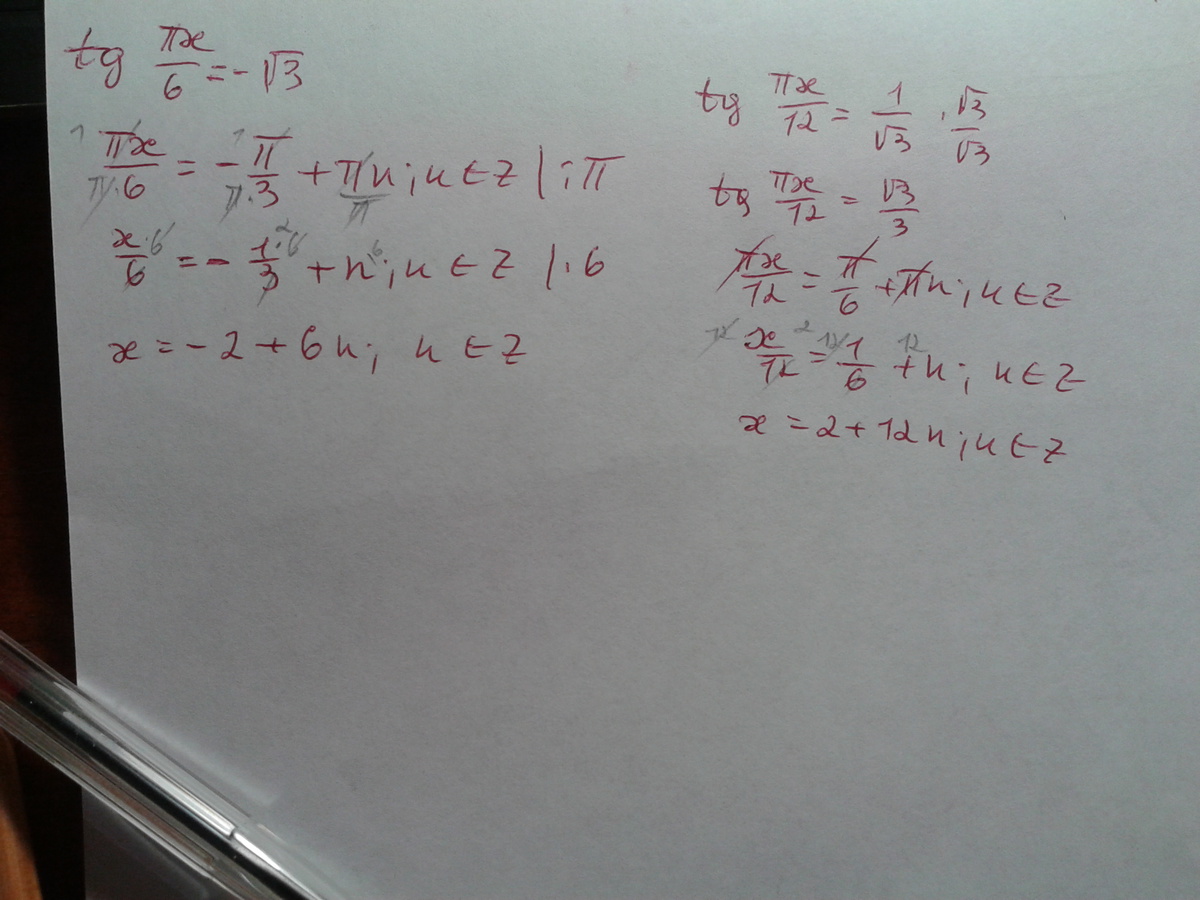 tg πx/6 = -√3
πx/6 = -π/3 + πn; n ∈ Z | :π
x/6 = -1/3 + n; n ∈ Z | ·6
x = -2 + 6n; n ∈ Z
tg πx/12 = 1/√3 · √3/√3
tg πx/12 = √3/3
πx/12 = π/6 + πn; n ∈ Z
x/12 = 1/6 + n; n ∈ Z
x = 2 + 12n; n ∈ Z